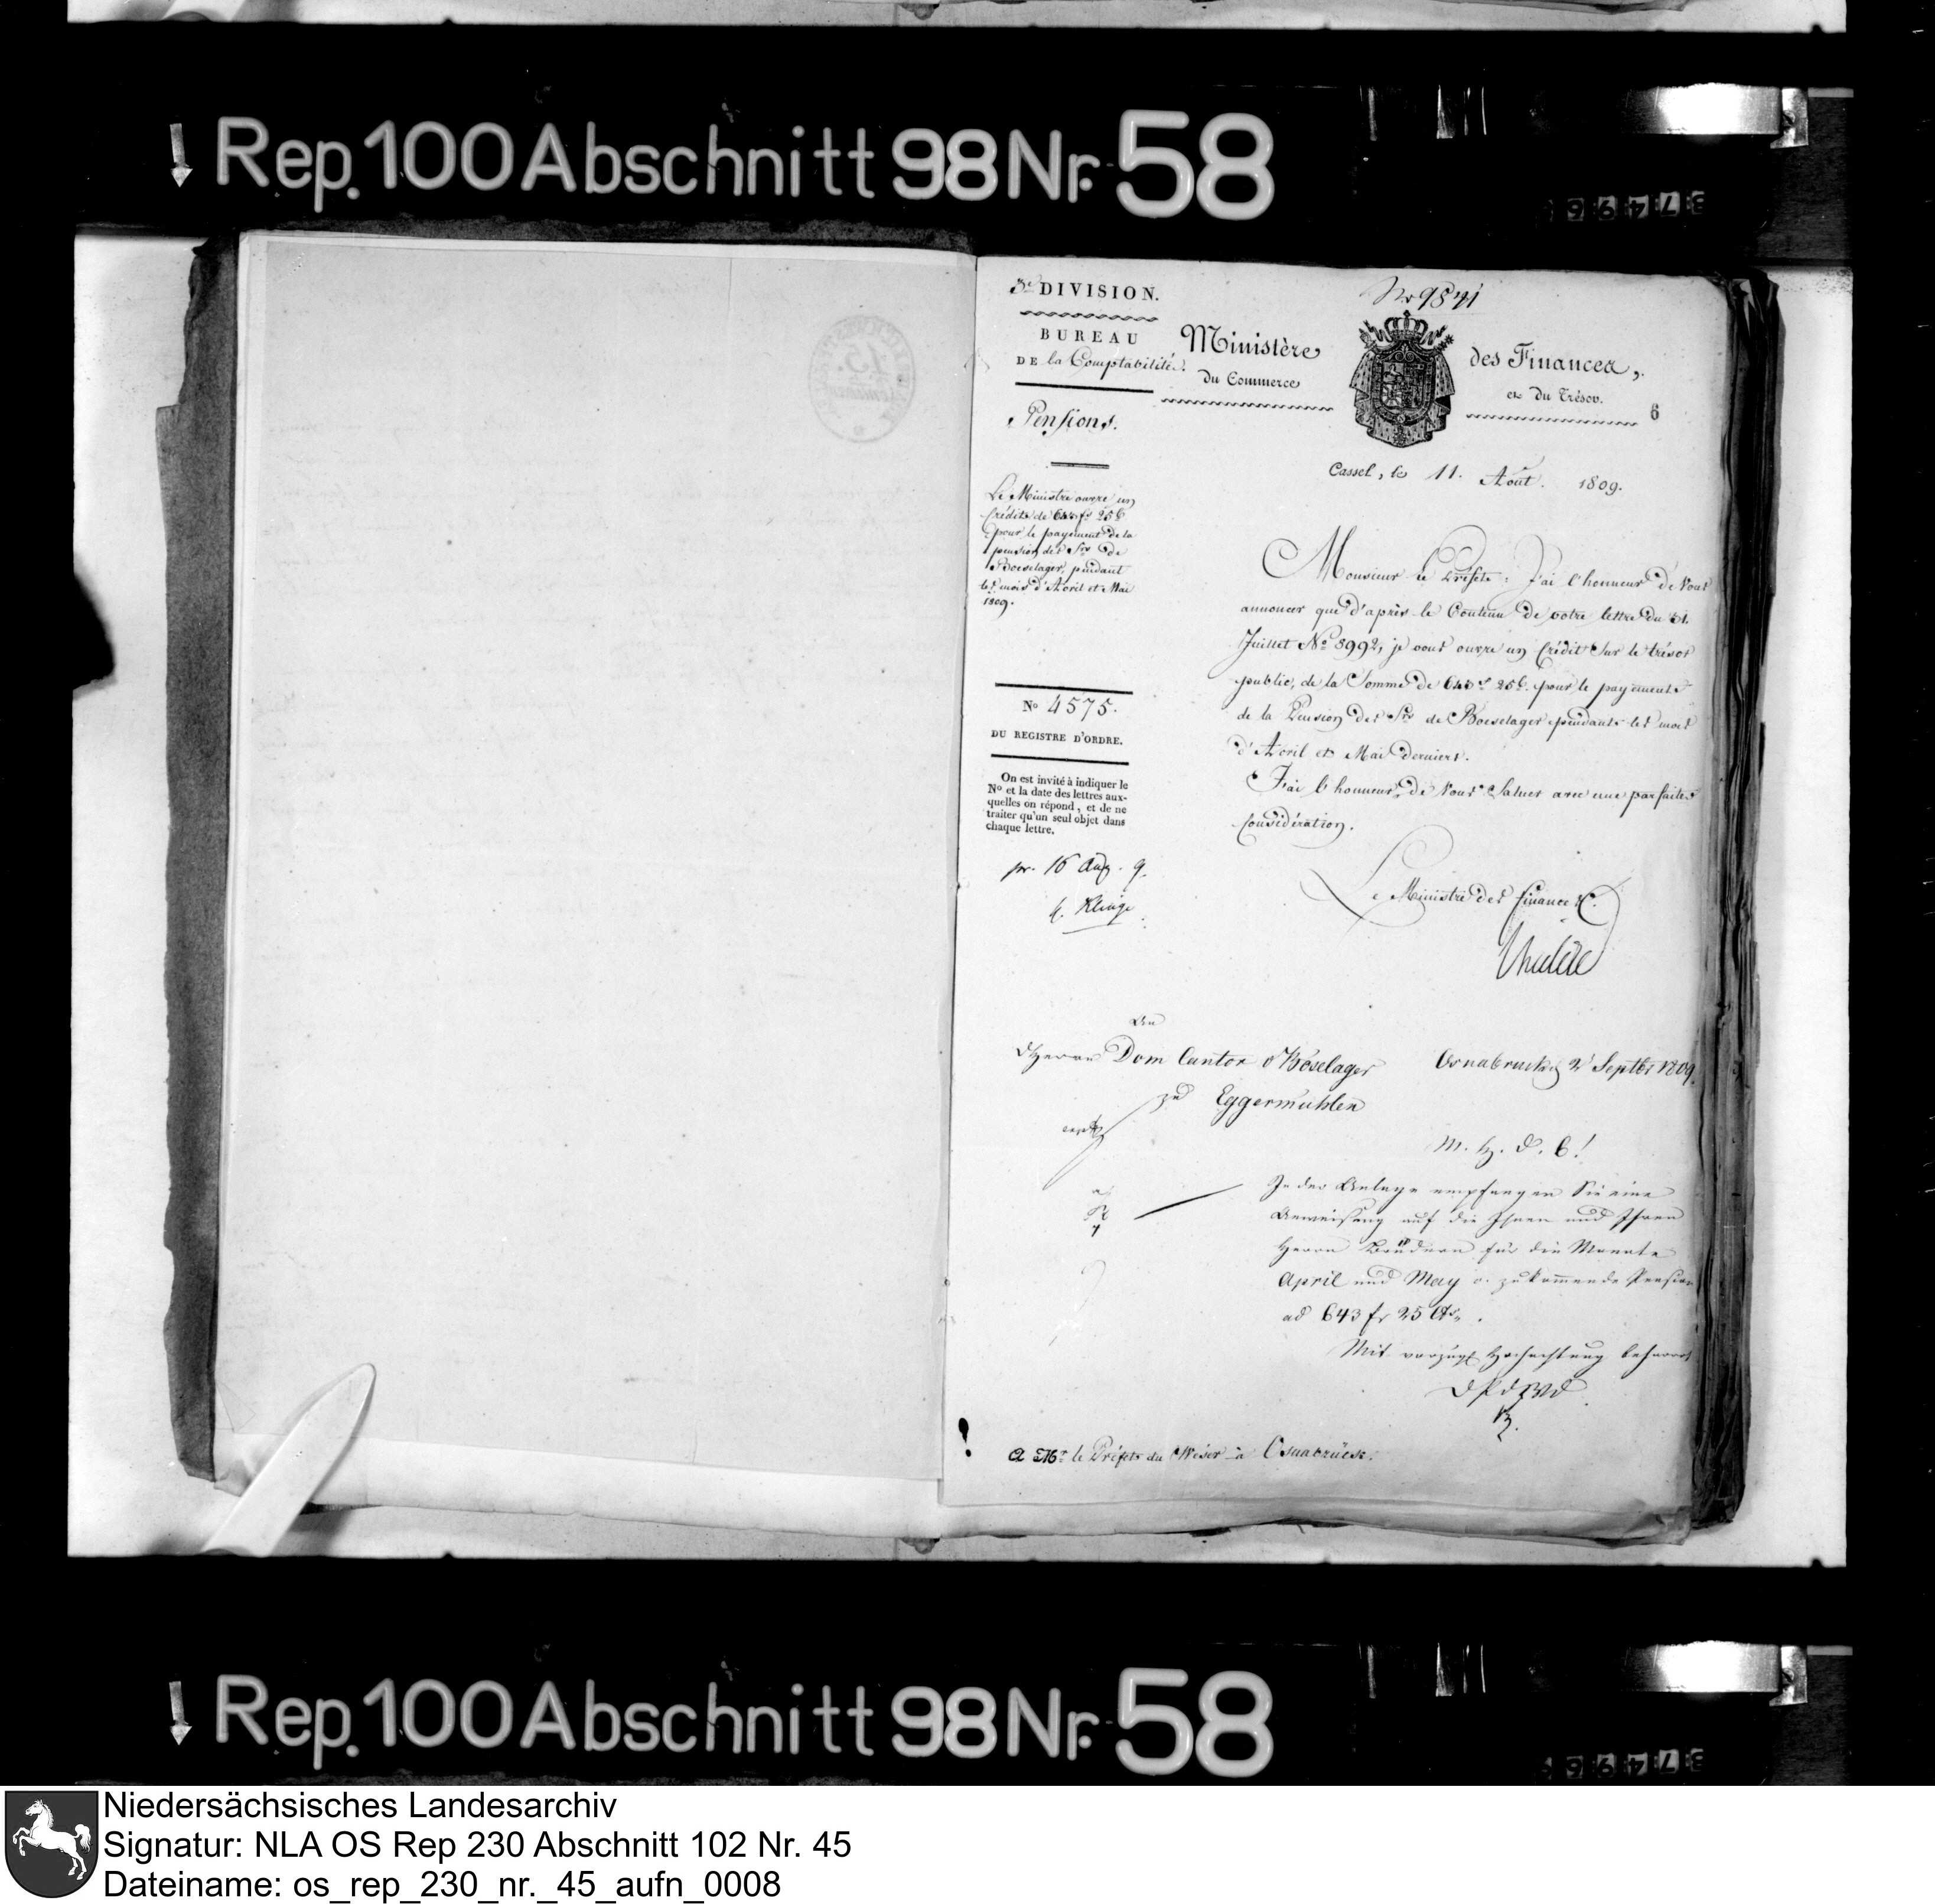 Rep. 100 Abschnitt 98 Nr. 58
3e DIVISION.
BUREAU
DE la Comptabilité.
No 9871
Ministère des Finances,
du Commerce et du Trésor.
6
Pensions.
Cassel, le 11. Août. 1809.
Le Ministre ouvre un
Crédit de 643 fs 25 c
pour le payement de la
pension des Srs de
Boeselager, pendant
les mois d'Avril et Mai
1809.
No 4575.
DU REGISTRE D'ORDRE.
On est invité à indiquer le
No et la date des lettres aux-
quelles on répond, et de ne
traiter qu'un seul objet dans
chaque lettre.
pr. 16 Aug. 9.
Klinge
Monsieur le Préfet, J'ai l'honneur de Vous
annoncer que d'après le Contenu de votre lettre du 31.
Juillet No 8992, je vous ouvre un Crédit Sur le trésor
public, de la Somme de 643 f 25 c. pour le payement
de la Pension des Srs de Boeselager pendant les mois
d'Avril et Mai derniers.
J'ai l'honneur de Vous Saluer avec une parfaite
Considération.
Le Ministre des finances.
An
d Herrn Dom Cantor v Böselager
zu Eggermühlen
Osnabruck d 2 Septbr 1809.
M. H. D. C!
In der Anlage empfangen Sie eine
Anweisung auf die Ihnen und Ihren
Herrn Brüdern für die Monate
April und May c. zukommende Pension
ad 643 fr 25 Cts.
Mit vorzügl Hochachtung beharret
D P d W D
A Mr le Préfet du Weser à Osnabrück.
Rep. 100 Abschnitt 98 Nr. 58
Niedersächsisches Landesarchiv
Signatur: NLA OS Rep 230 Abschnitt 102 Nr. 45
Dateiname: os_rep_230_nr._45_aufn_0008